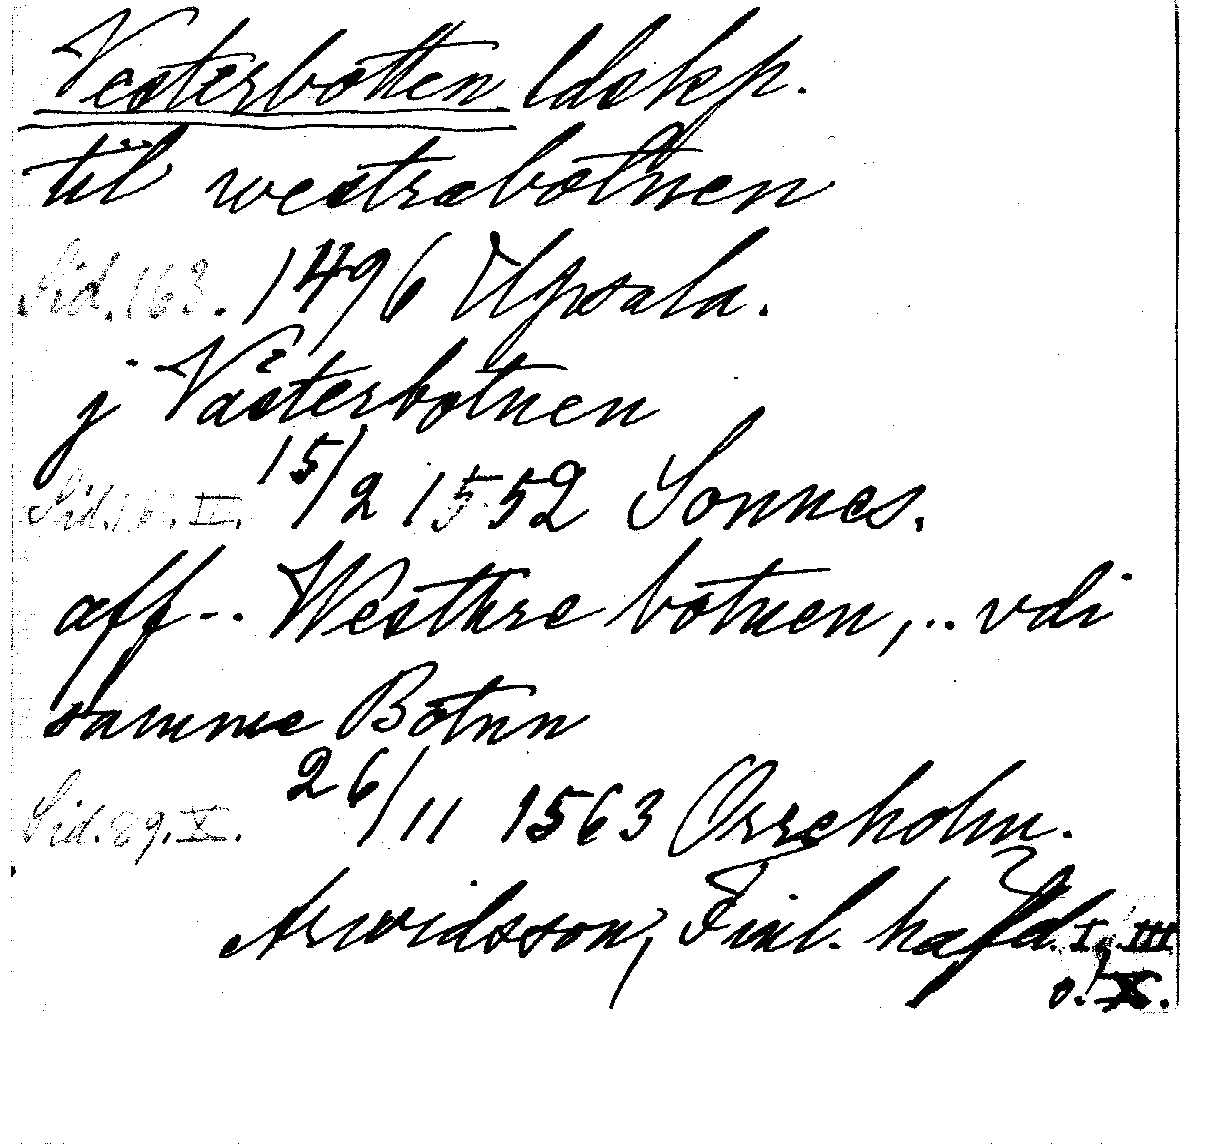 Vesterbotten ldskp.
til westrabotnen
Sid. 163. 1496 Upsala.
j Våsterbotnen
15/2 1552 Sonnes.
aff - . Westhre botnen, .. vdi
samme Botnn
Sid. 89. X. 26/11 1563 Orreholm.
Arwidsson, Finl. häfd. I, III
o. X.